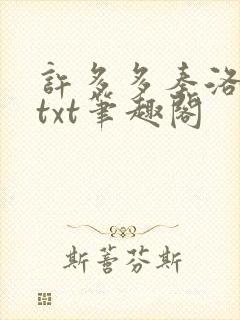 許多多秦洛
txt筆趣閣
斯薔芬斯